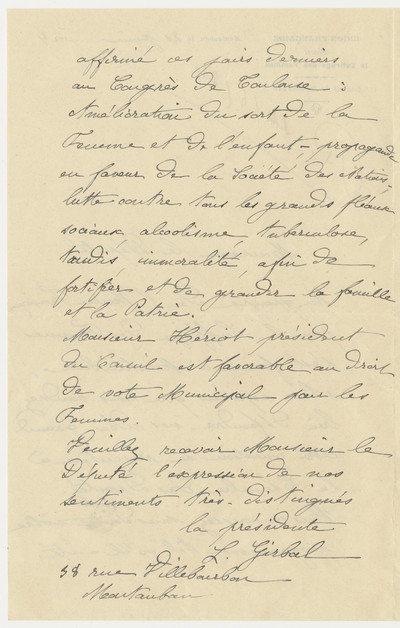 affirmé ces jours derniers
au Congrès de Toulouse :
Amélioration du sort de la
Femme et de l'enfant - propagande
en faveur de la Société des Nations,
lutte contre tous les grands fléaux
sociaux alcoolisme, tuberculose,
taudis, immoralité, afin de
fortifier et de grandir la famille
et la Patrie.
Monsieur Hériot président
du Conseil est favorable au droit
de vote Municipal pour les
Femmes.
Veuillez recevoir Monsieur le
Député l'expression de nos
sentiments très-distingués
la présidente
L. Girbal
58 rue Villebourbon
Montauban